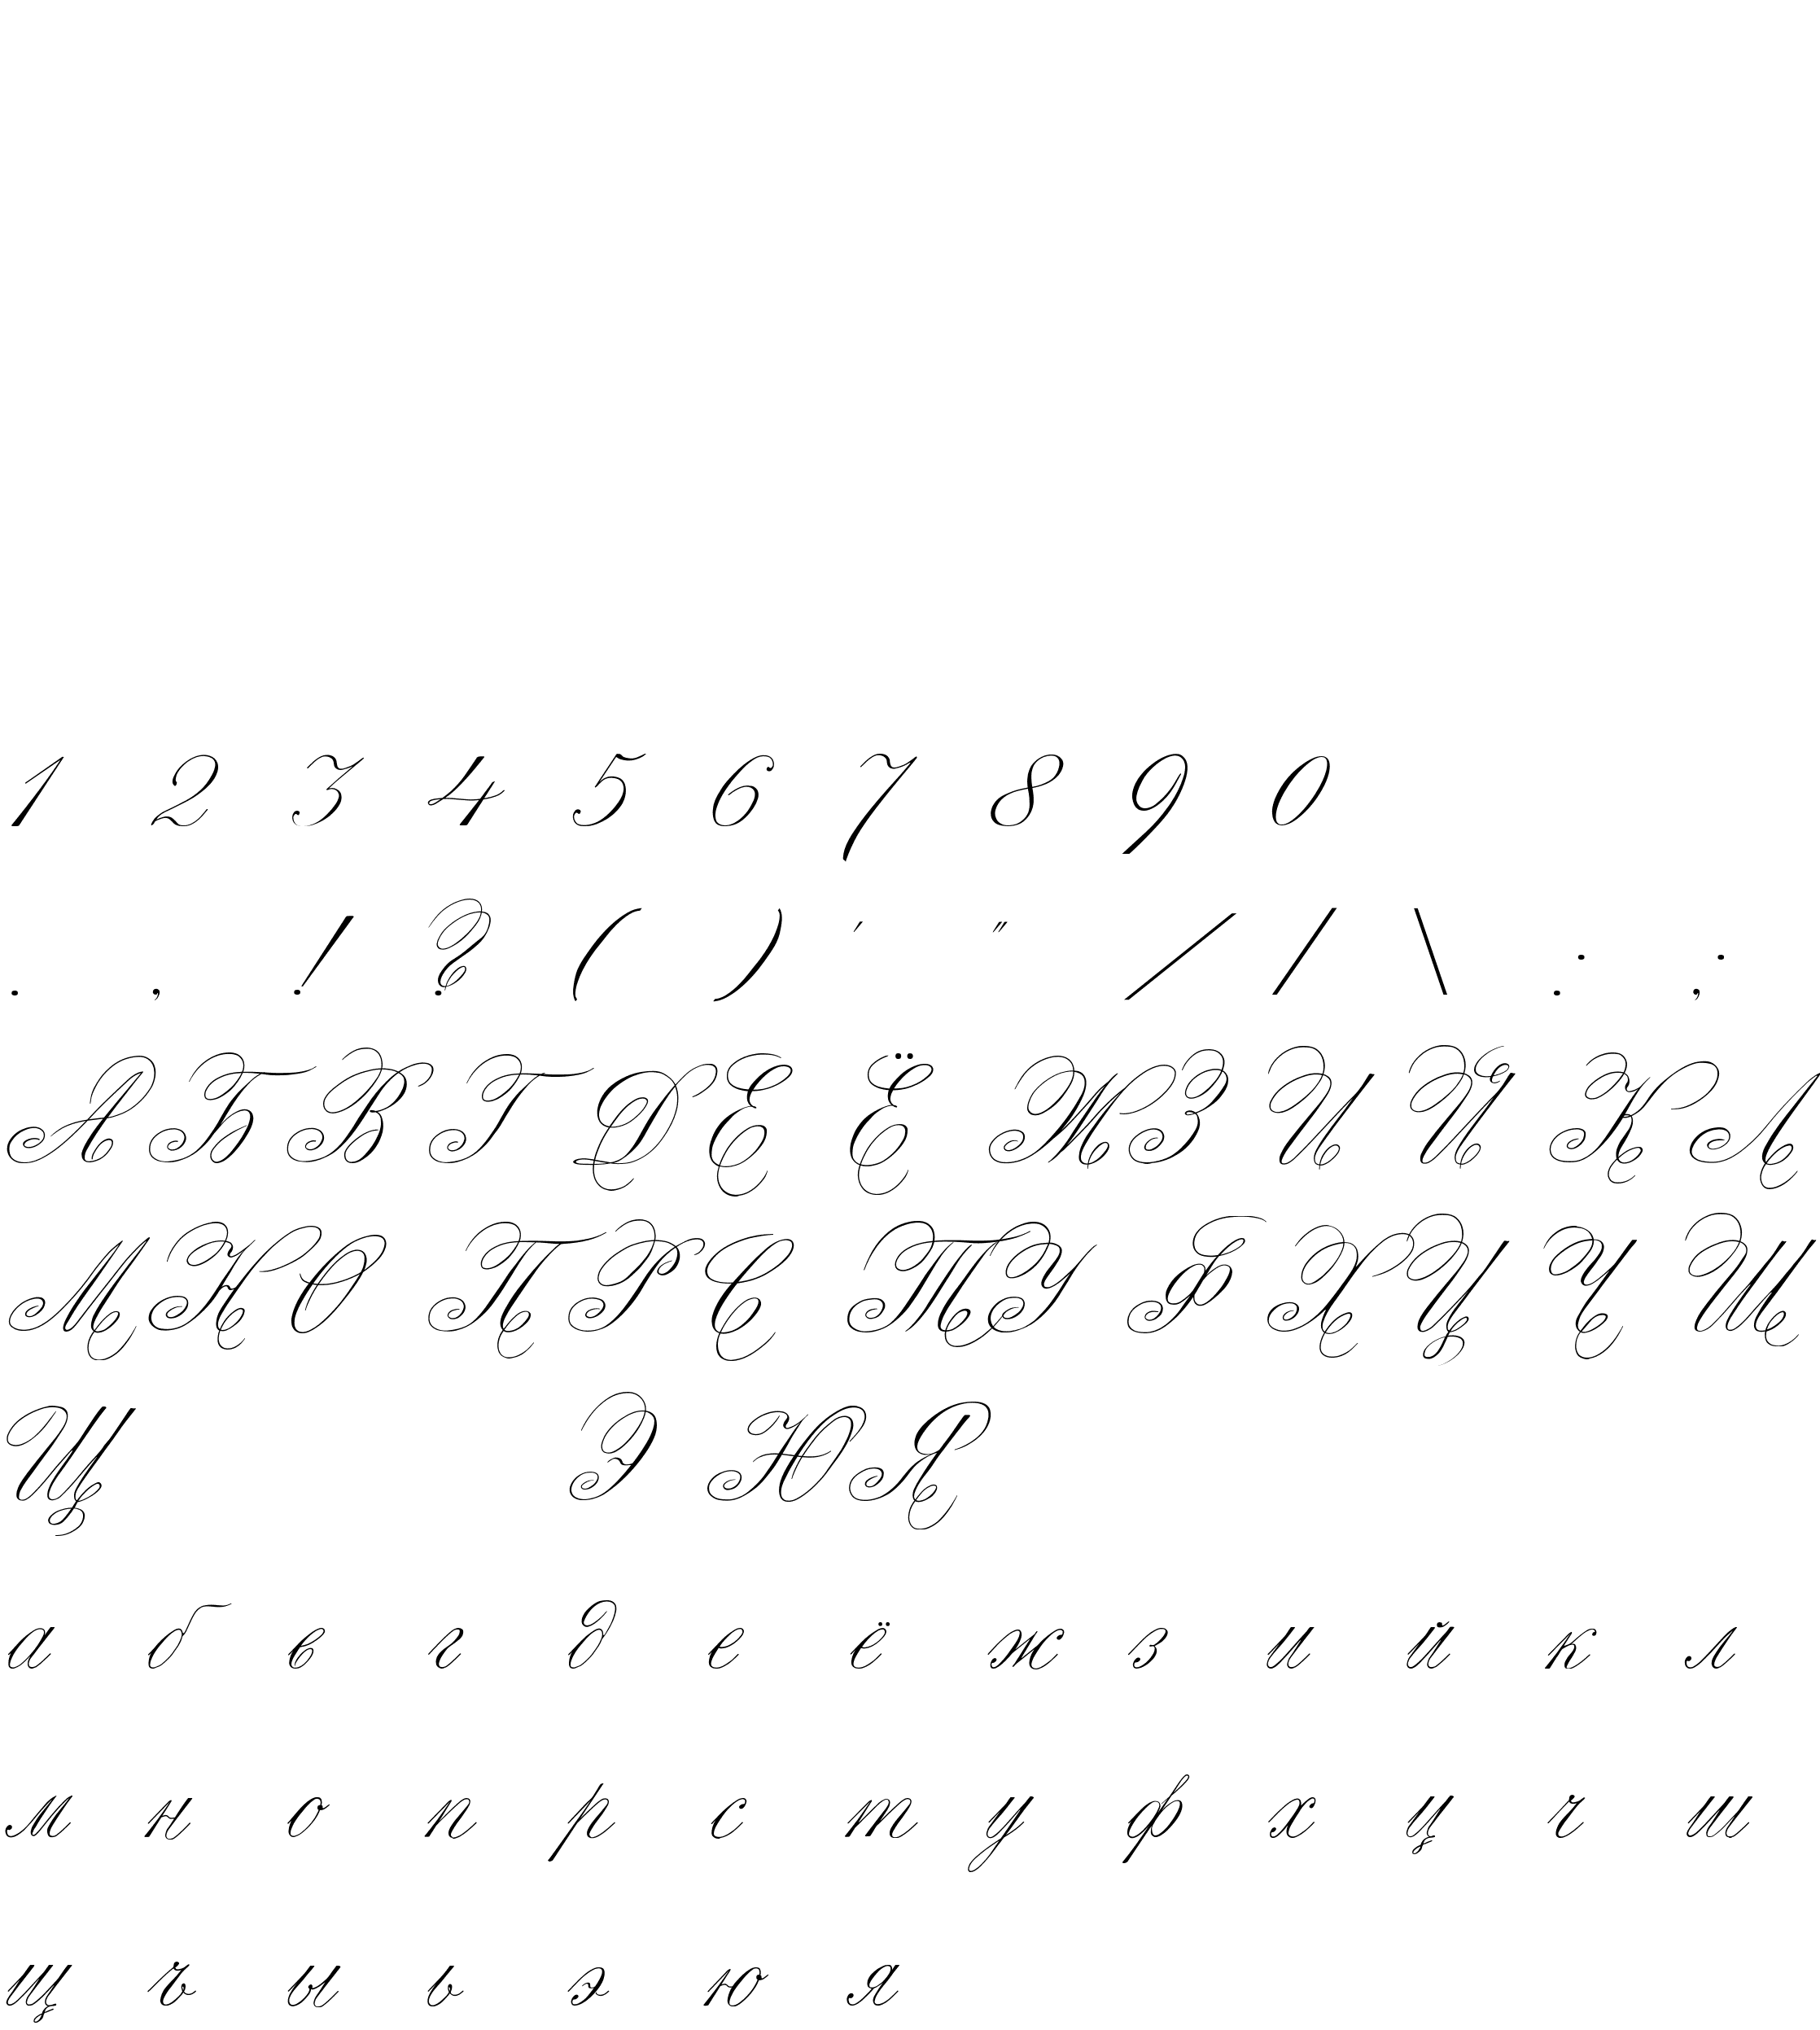 1 2 3 4 5 6 7 8 9 0
. , ! ? ( ) ' " / / \ : ;
А Б В Г Д Е Ё Ж З И Й К Л
М Н О П Р С Т У Ф Х Ц Ч Ш
Щ Э Ю Я
а б в г д е ё ж з и й к л
м н о п р с т у ф х ц ч ш
щ ъ ы ь э ю я